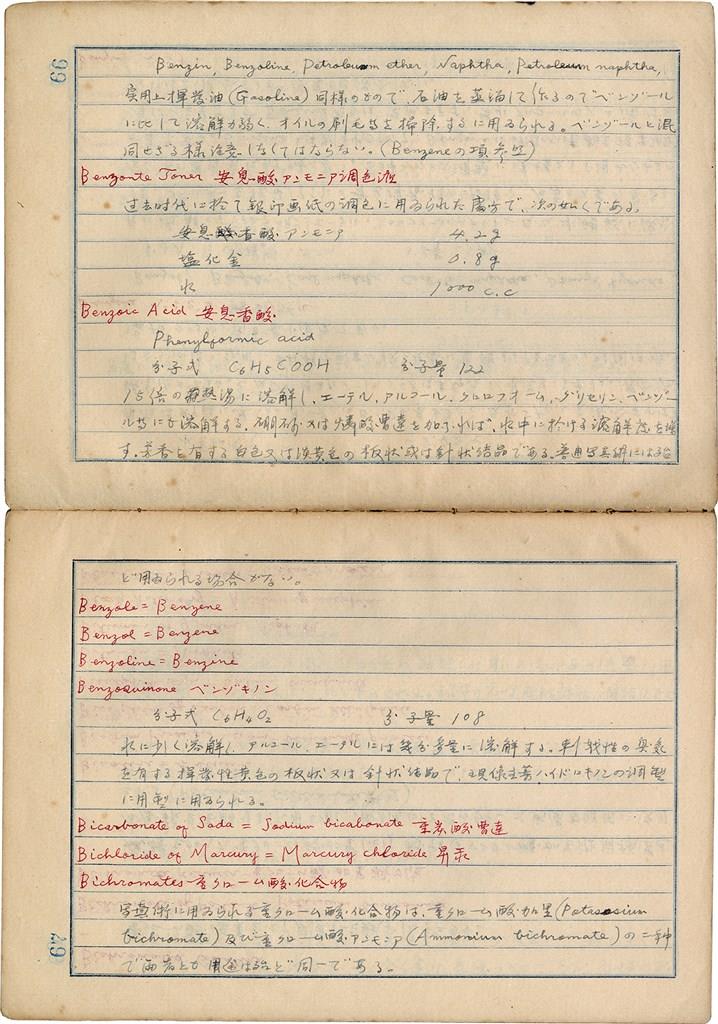 66
Benzin, Benzoline, Petroleum ether, Naphtha, Petroleum naphtha,
実用上揮発油(Gasoline)同様のもので、石油を蒸溜して作るのでベンゾール
に比して溶解力弱く、オイルの刷毛等を掃除するに用ゐられる。ベンゾールと混
同せざる様注意しなくてはならない。(Benzeneの項参照)
Benzonte Toner 安息酸アンモニア調色液
過去時代に於て銀印画紙の調色に用ゐられた處方で、次の如くである。
安息香酸アンモニア 4.2g
塩化金 0.8g
水 1000 c.c
Benzoic Acid 安息香酸
Phenylformic acid
分子式 C6H5COOH 分子量 122
15倍の熱湯に溶解し、エーテル、アルコール、クロロフォーム、グリセリン、ベンゾー
ル等にも溶解する。硼砂又は燐酸曹達を加ふれば、水中に於ける溶解度を増
す。芳香を有する白色又は淡黄色の板状或は針状結晶である。普通写真術には殆
ど用ゐられる場合がない。
Benzole = Benzene
Benzol = Benzene
Benzoline = Benzine
Benzoquinone ベンゾキノン
分子式 C6H4O2 分子量 108
水に少く溶解し、アルコール、エーテルには幾分多量に溶解する。刺戟性の臭氣
を有する揮發性黄色の板状又は針状結晶で、現像主薬ハイドロキノンの調製
に用ゐられる。
Bicarbonate of Sada = Sodium bicabonate 重炭酸曹達
Bichloride of Marcury = Marcury chloride 昇汞
Bichromates 重クローム酸化合物
写真術に用ゐられる重クローム酸化合物は、重クローム酸加里(Potassium
bichromate)及び重クローム酸アンモニア(Ammonium bichromate)の二種
で両者とも用途は殆ど同一である。
67